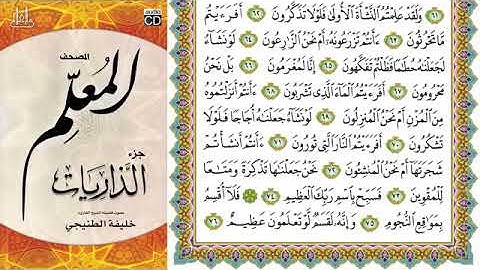 audio
CD
المصحف
المُعلِّم
جزء
الذاريات
خليفة الطنيجي
٦١ وَلَقَدْ عَلِمْتُمُ ٱلنَّشْأَةَ ٱلْأُولَىٰ فَلَوْلَا تَذَكَّرُونَ ٦٢ أَفَرَءَيْتُم
مَّا تَحْرُثُونَ ٦٣ ءَأَنتُمْ تَزْرَعُونَهُۥٓ أَمْ نَحْنُ ٱلزَّٰرِعُونَ ٦٤ لَوْ نَشَآءُ
لَجَعَلْنَٰهُ حُطَٰمًا فَظَلْتُمْ تَفَكَّهُونَ ٦٥ إِنَّا لَمُغْرَمُونَ ٦٦ بَلْ نَحْنُ
مَحْرُومُونَ ٦٧ أَفَرَءَيْتُمُ ٱلْمَآءَ ٱلَّذِى تَشْرَبُونَ ٦٨ ءَأَنتُمْ أَنزَلْتُمُوهُ
مِنَ ٱلْمُزْنِ أَمْ نَحْنُ ٱلْمُنزِلُونَ ٦٩ لَوْ نَشَآءُ جَعَلْنَٰهُ أُجَاجًا فَلَوْلَا
تَشْكُرُونَ ٧٠ أَفَرَءَيْتُمُ ٱلنَّارَ ٱلَّتِى تُورُونَ ٧١ ءَأَنتُمْ أَنشَأْتُمْ
شَجَرَتَهَآ أَمْ نَحْنُ ٱلْمُنشِـُٔونَ ٧٢ نَحْنُ جَعَلْنَٰهَا تَذْكِرَةً وَمَتَٰعًا
لِّلْمُقْوِينَ ٧٣ فَسَبِّحْ بِٱسْمِ رَبِّكَ ٱلْعَظِيمِ ٧٤ فَلَآ أُقْسِمُ
بِمَوَٰقِعِ ٱلنُّجُومِ ٧٥ وَإِنَّهُۥ لَقَسَمٌ لَّوْ تَعْلَمُونَ عَظِيمٌ ٧٦